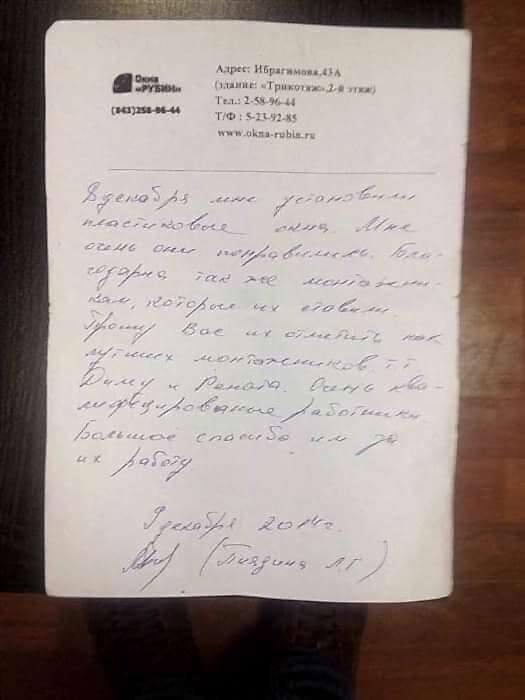 Окна
«РУБИН»
(843)258-96-44
Адрес: Ибрагимова,43А
(здание: «Трикотаж»,2-й этаж)
Тел.: 2-58-96-44
Т/Ф : 5-23-92-85
www.okna-rubin.ru
8 декабря мне установили
пластиковые окна. Мне
очень они понравились. Бла-
годарна так же монтажни-
кам, которые их ставили.
Прошу Вас их отметить как
лучших монтажников. т.т
Диму и Рената. Очень ква-
лифицированные работники.
Большое спасибо им за
их работу
9 декабря 2014г.
(Пиядина Л.Г)